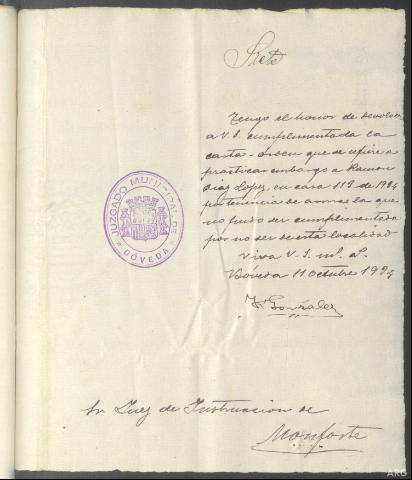 Siete
Tengo el honor de devolver
a V.S. cumplimentada la
carta-orden que se refiere a
practicar embargo a Ramon
Diaz Lopez, en causa 112 de 1934
por tenencia de armas la que
no pudo ser cumplimentada
por no ser de esta localidad
Viva V.S. m. a.
Bóveda 11 octubre 1934
González
JUZGADO MUNICIPAL DE
BÓVEDA
Sr Juez de Instruccion de
Monforte
ARG